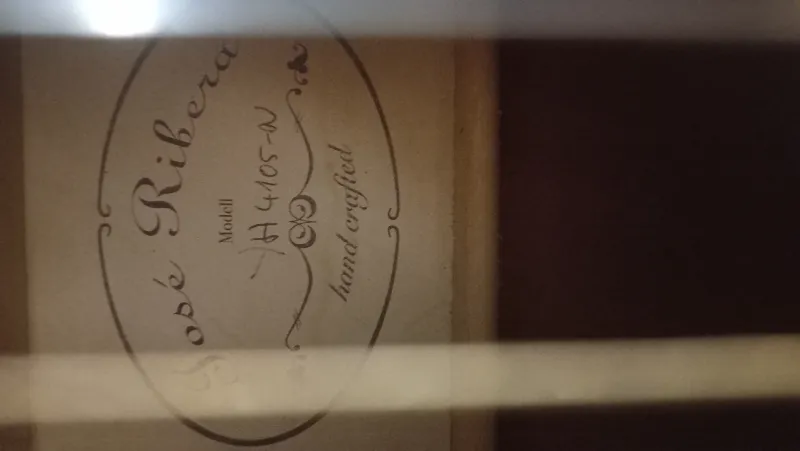 José Ribera
Modell
H4105-N
hand crafted